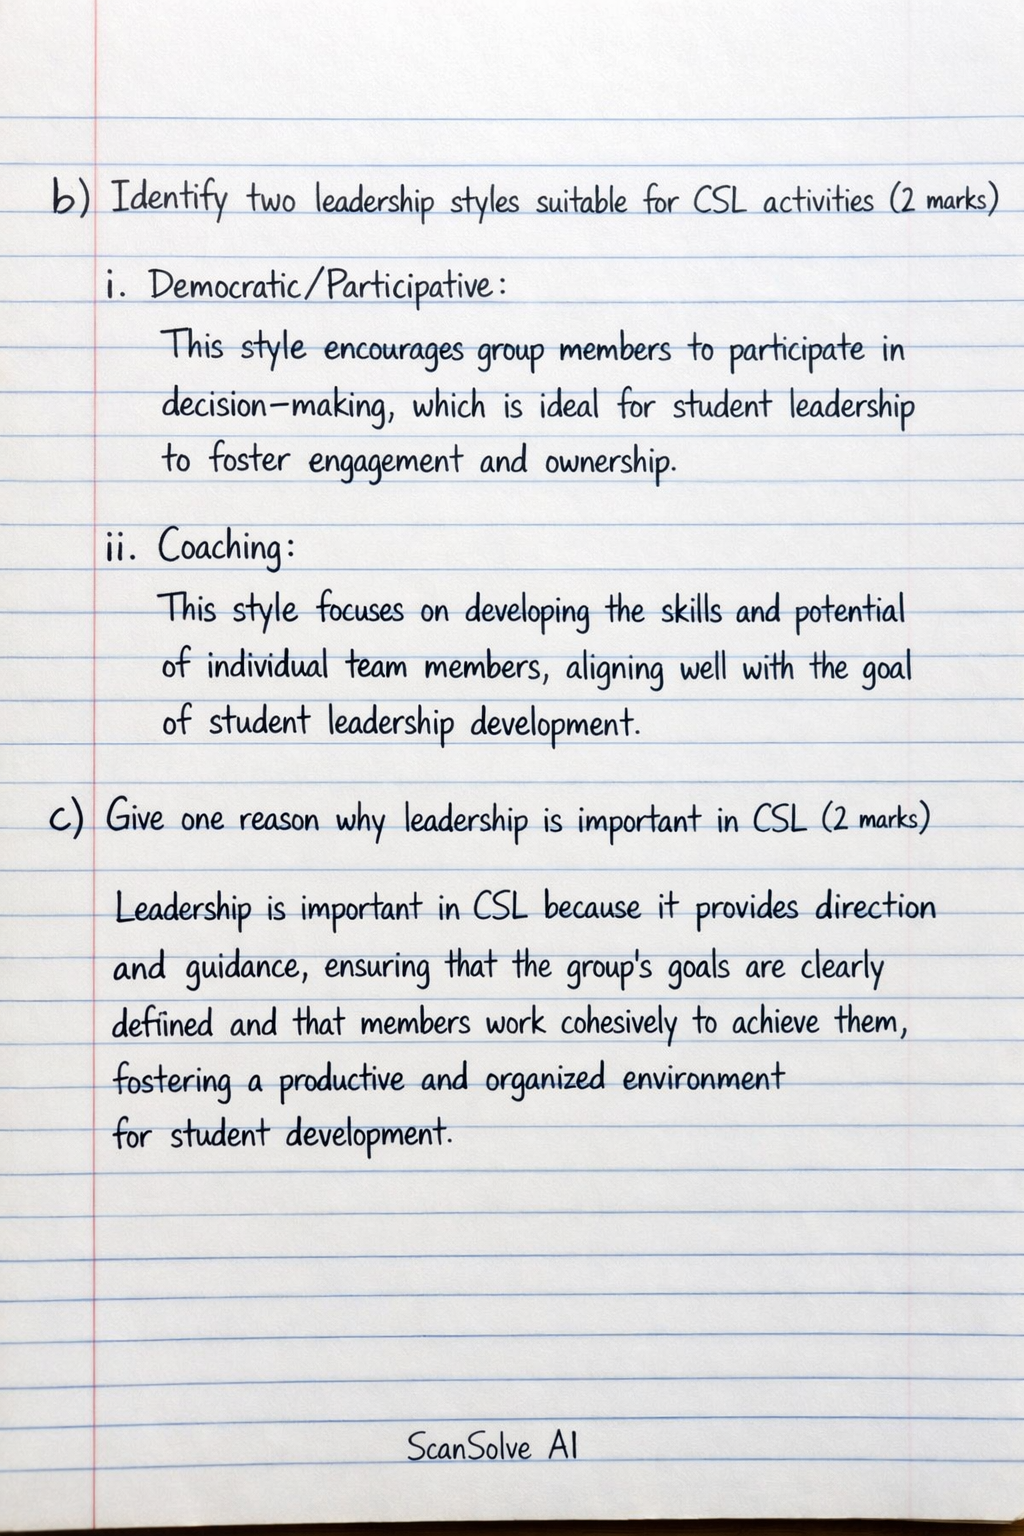 b) Identify two leadership styles suitable for CSL activities (2 marks)
i. Democratic/Participative:
This style encourages group members to participate in
decision-making, which is ideal for student leadership
to foster engagement and ownership.
ii. Coaching:
This style focuses on developing the skills and potential
of individual team members, aligning well with the goal
of student leadership development.
c) Give one reason why leadership is important in CSL (2 marks)
Leadership is important in CSL because it provides direction
and guidance, ensuring that the group's goals are clearly
defiined and that members work cohesively to achieve them,
fostering a productive and organized environment
for student development.
ScanSolve AI